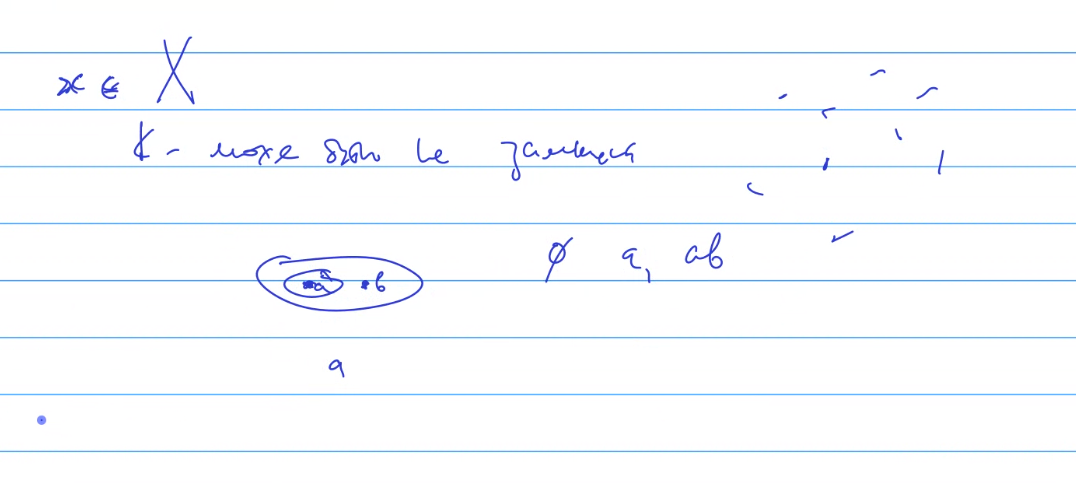 x ∈ X
K - може бути не замкнен
a b ∅ a, ab
a